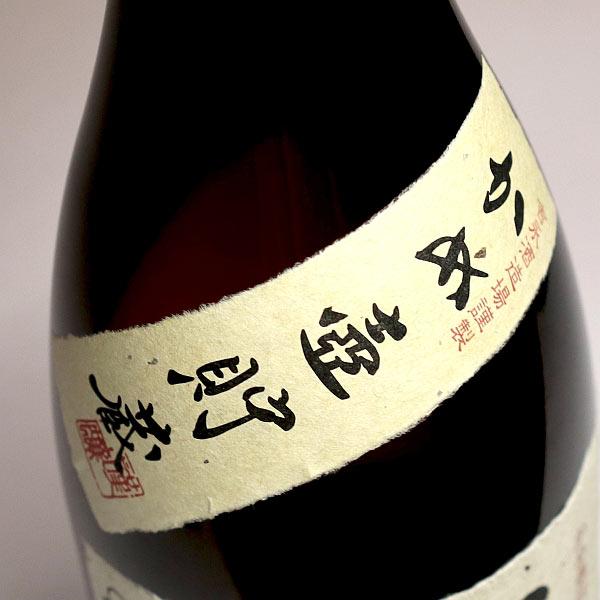 かめ壺貯蔵
酒造場謹製